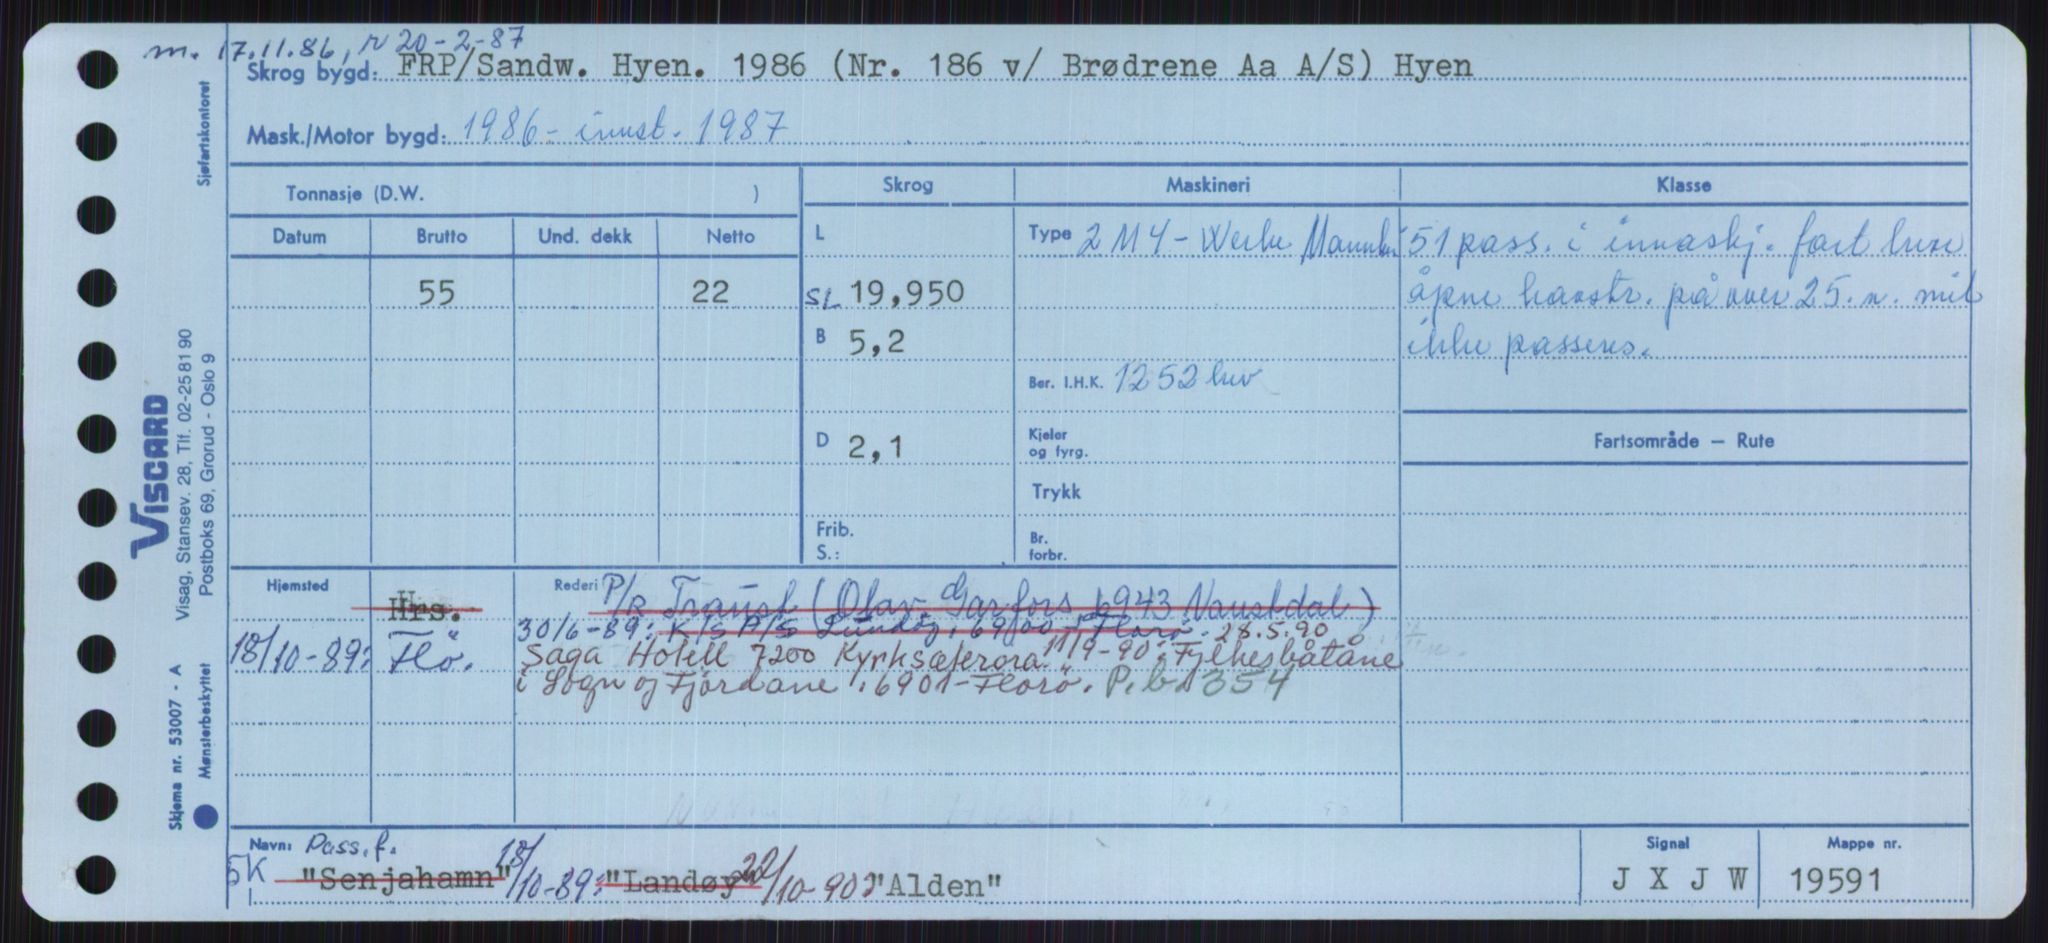 m. 17.11.86, r 20-2-87
Skrog bygd: FRP/Sandw. Hyen. 1986 (Nr. 186 v/ Brødrene Aa A/S) Hyen
Mask./Motor bygd: 1986 - innst. 1987
Tonnasje (D.W. )
Skrog
Maskineri
Klasse
Datum Brutto Und. dekk Netto
55 22
L
SL 19,950
B 5,2
D 2,1
Frib.
S.:
Type 2 M 4 - Werke
Ber. I.H.K. 1252 hv
Kjeler
og fyrg.
Trykk
Br.
forbr.
51 pass. i innaskj. fart hvor
åpne havstr. på over 25. n. mil
ikke passeres.
Fartsområde — Rute
Hjemsted
Hrs.
18/10-89: Flö.
Rederi P/R Transf (Olav Garfors 6943 Naustdal)
30/6-89: K/S A/S Landøy, 6900 - Florø. 28.5.90
Saga Hotell 7200 Kyrksæterøra. 11/9-90: Fylkesbåtane
i Sogn og Fjordane, 6901 - Florö. P.b. 354
Navn: Pass.f.
5K "Senjahamn" 18/10-89: "Landøy" 22/10-90: "Alden"
Signal
J X J W
Mappe nr.
19591
VISCARD
Visag, Stansev. 28, Tlf. 02-25 81 90
Postboks 69, Grorud - Oslo 9
Skjema nr. 53007 - A
Mønsterbeskyttet
Sjøfartskontoret